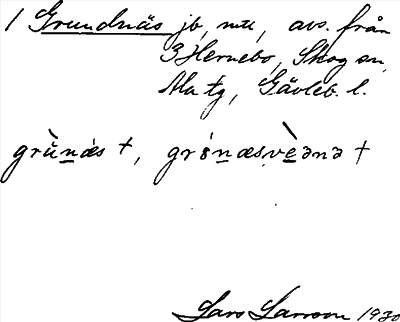 1 Grundnäs jb, mtl, avs. från
3 Hernebo, Skog sn,
Ma tg, Gävleb. l.
grùnæs +, grónæsvèənə +
Lars Larsson 1930